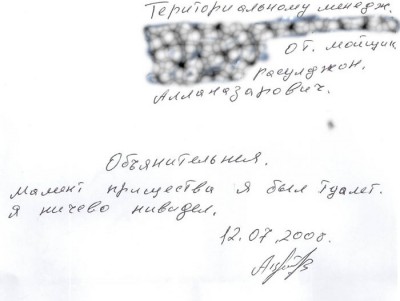 Териториальному менедж.
от. мойщик
расулджон.
Алланазарович.
Объянительния.
мамент прищества я был туалет.
я ничево нивидел,
12.07.2008.